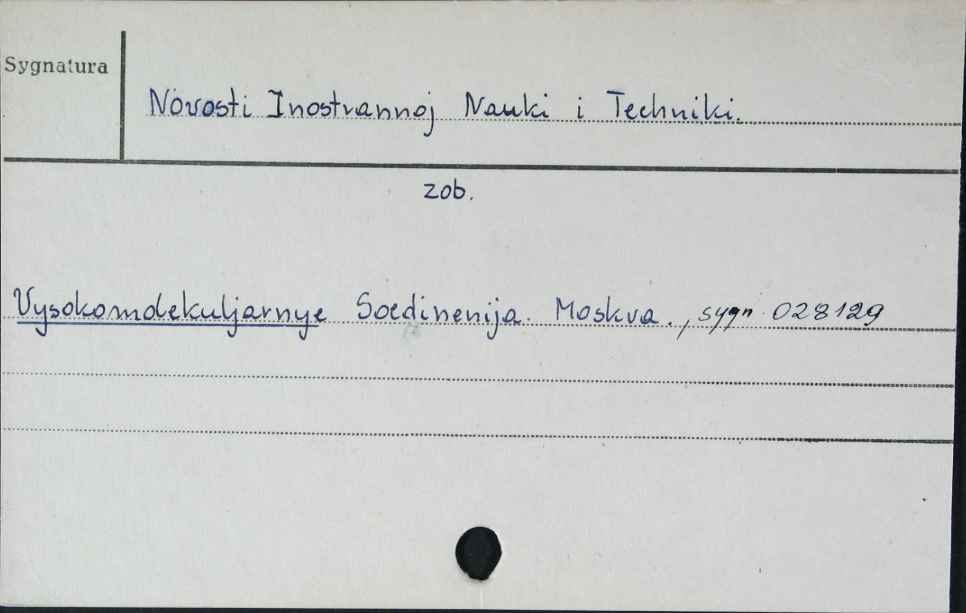 Sygnatura
Novosti Inostrannoj Nauki i Techniki.
zob.
Vysokomolekuljarnye Soedinenija. Moskva., sygn. 028129